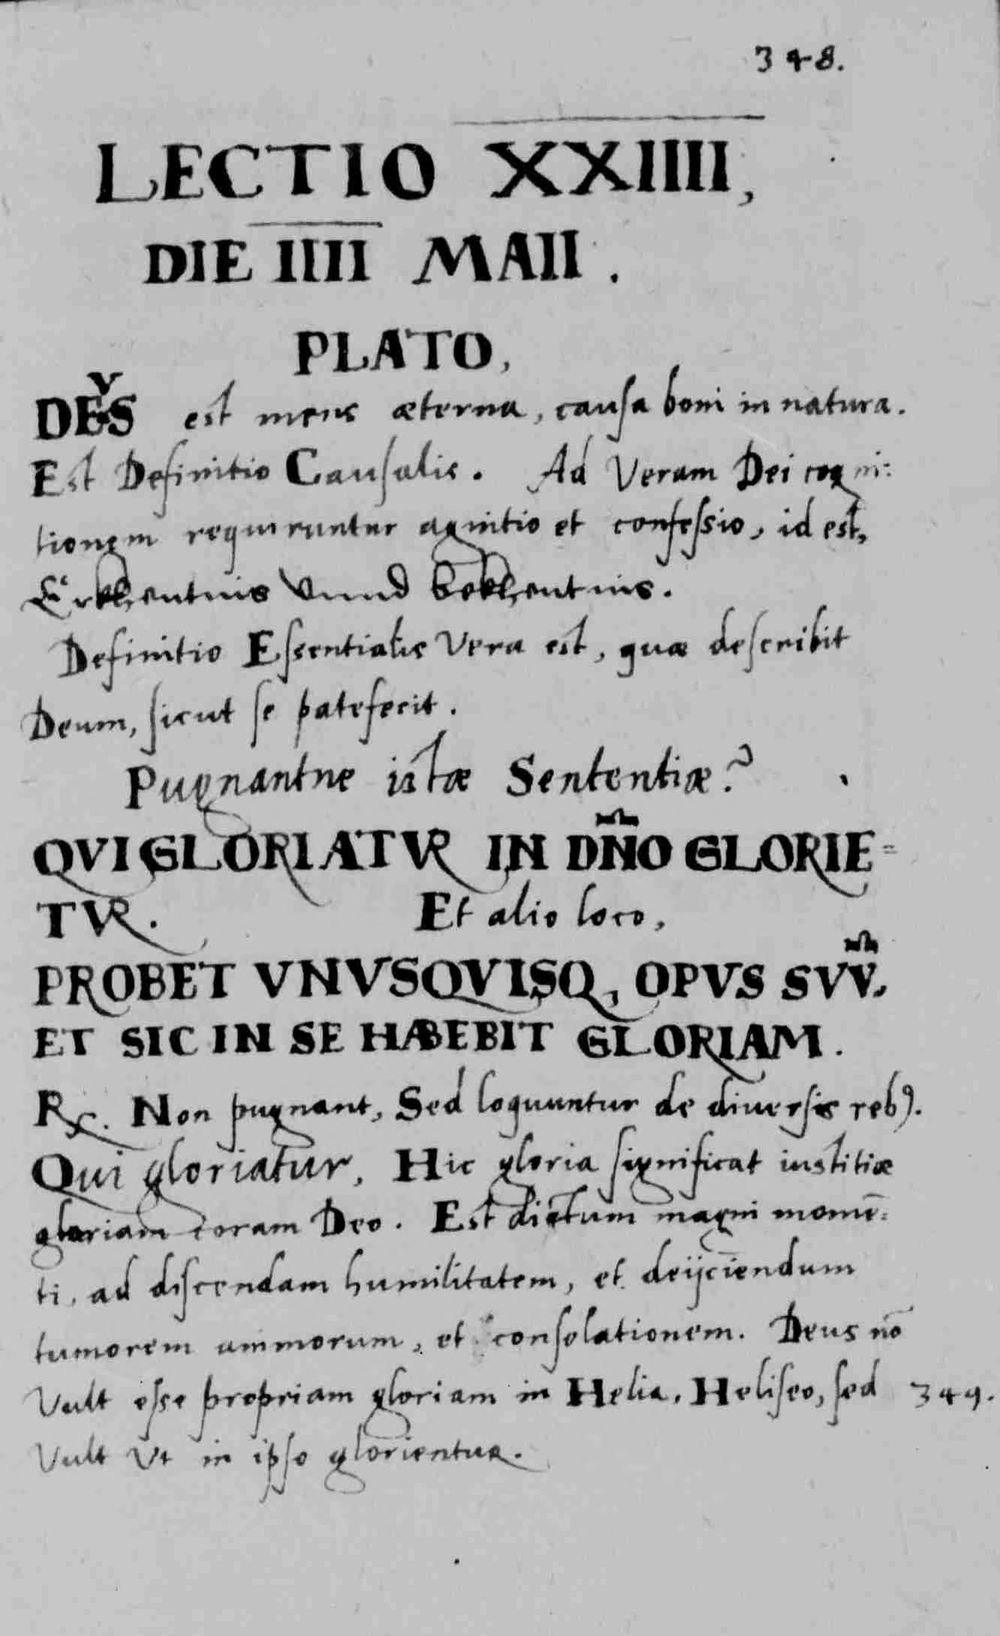 348.
LECTIO XXIIII,
DIE IIII MAII.
PLATO,
DEVS est mens æterna, causa boni in natura.
Est Definitio Causalis. Ad Veram Dei cogni:
tionem requiruntur agnitio et confessio, id est,
Erkhentnis Vnnd bekhentnis.
Definitio Essentialis Vera est, quæ describit
Deum, sicut se patefecit.
Pugnantne istæ Sententiæ?
QVI GLORIATVR IN DÑO GLORIE=
TVR. Et alio loco,
PROBET VNVSQVISQ, OPVS SVV̄.
ET SIC IN SE HABEBIT GLORIAM.
Rx. Non pugnant, Sed loquuntur de diuersis reb9.
Qui gloriatur, Hic gloria significat iustitiæ
gloriam coram Deo. Est dictum magni momē:
ti, ad discendam humilitatem, et deijciendum
tumorem animorum, et consolationem. Deus nō
Vult esse propriam gloriam in Helia, Heliseo, sed 349.
Vult Vt in ipso glorientur.